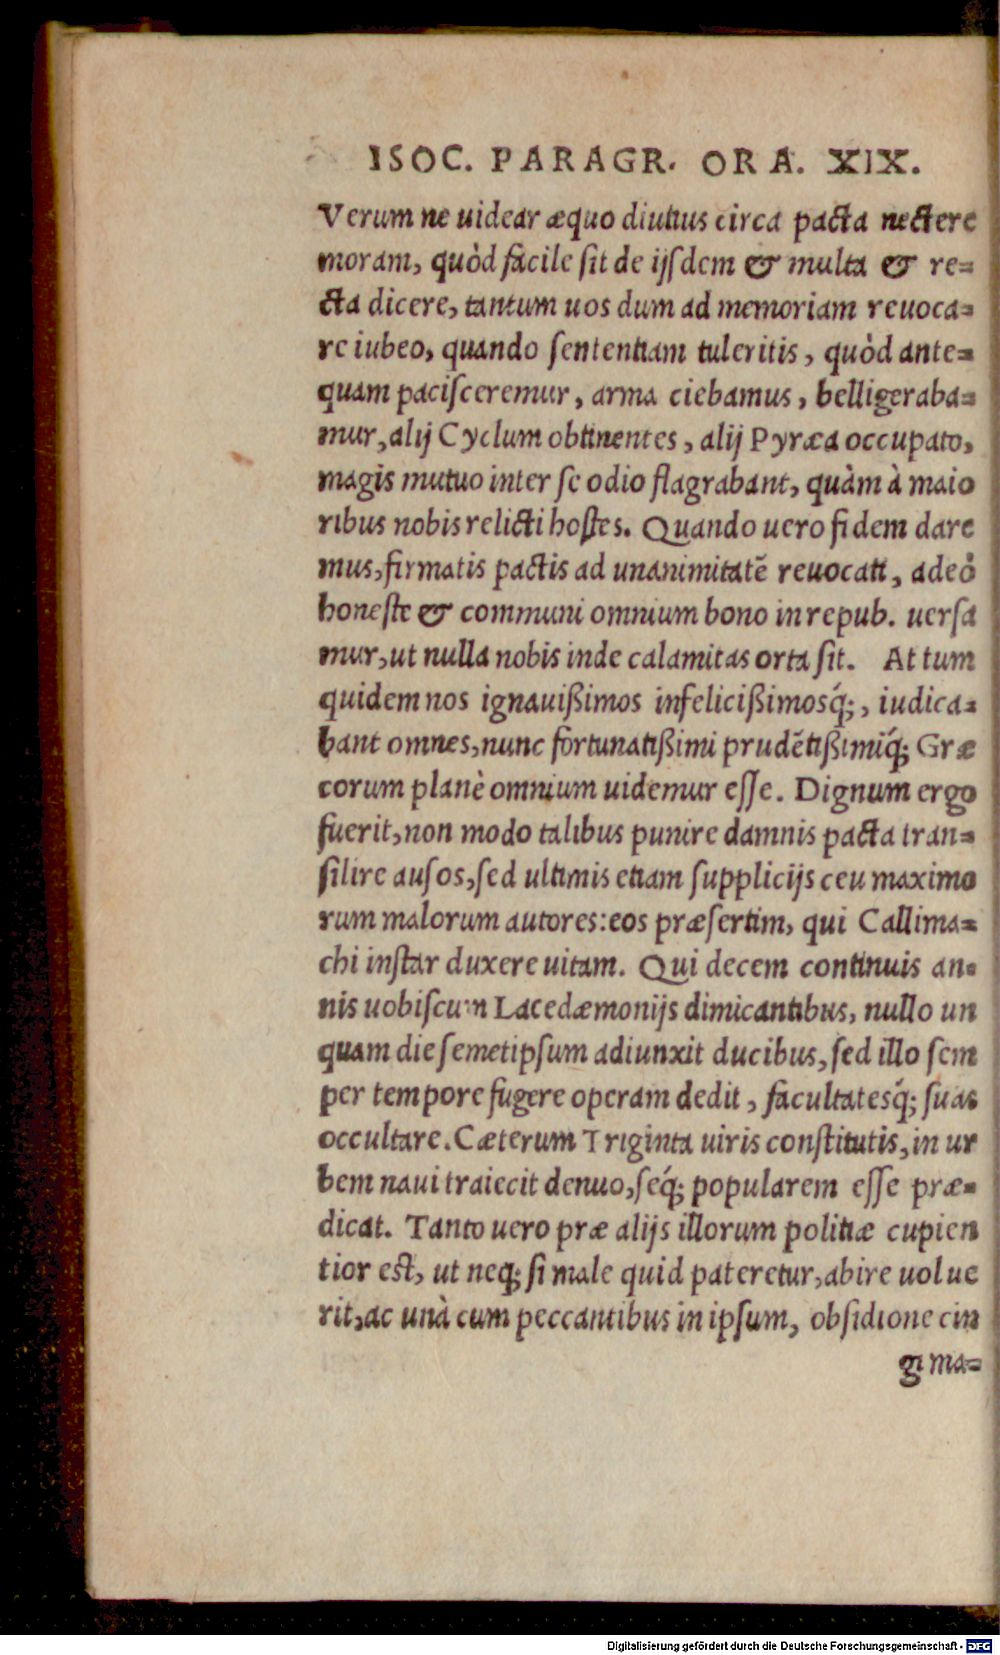 ISOC. PARAGR. ORA. XIX.
Verum ne uidear æquo diutius circa pacta nectere
moram, quòd facile sit de ijsdem & multa & re=
cta dicere, tantum uos dum ad memoriam reuoca=
re iubeo, quando sententiam tuleritis, quòd ante=
quam pacisceremur, arma ciebamus, belligeraba=
mur, alij Cyclum obtinentes, alij Pyræa occupato,
magis mutuo inter se odio flagrabant, quàm à maio
ribus nobis relicti hostes. Quando uero fidem dare
mus, firmatis pactis ad unanimitatē reuocati, adeò
honeste & communi omnium bono in repub. uersa
mur, ut nulla nobis inde calamitas orta sit. At tum
quidem nos ignauißimos infelicißimosq́;, iudica=
bant omnes, nunc fortunatißimi prudētißimiq́; Græ
corum planè omnium uidemur esse. Dignum ergo
fuerit, non modo talibus punire damnis pacta tran=
silire ausos, sed ultimis etiam supplicijs ceu maximo
rum malorum autores: eos præsertim, qui Callima=
chi instar duxere uitam. Qui decem continuis an=
nis uobiscum Lacedæmonijs dimicantibus, nullo un
quam die semetipsum adiunxit ducibus, sed illo sem
per tempore fugere operam dedit, facultatesq́; suas
occultare. Cæterum Triginta uiris constitutis, in ur
bem naui traiecit denuo, seq́; popularem esse præ=
dicat. Tanto uero præ alijs illorum politiæ cupien
tior est, ut neq; si male quid pateretur, abire uolue
rit, ac unà cum peccantibus in ipsum, obsidione cin
gi ma=
Digitalisierung gefördert durch die Deutsche Forschungsgemeinschaft - DFG